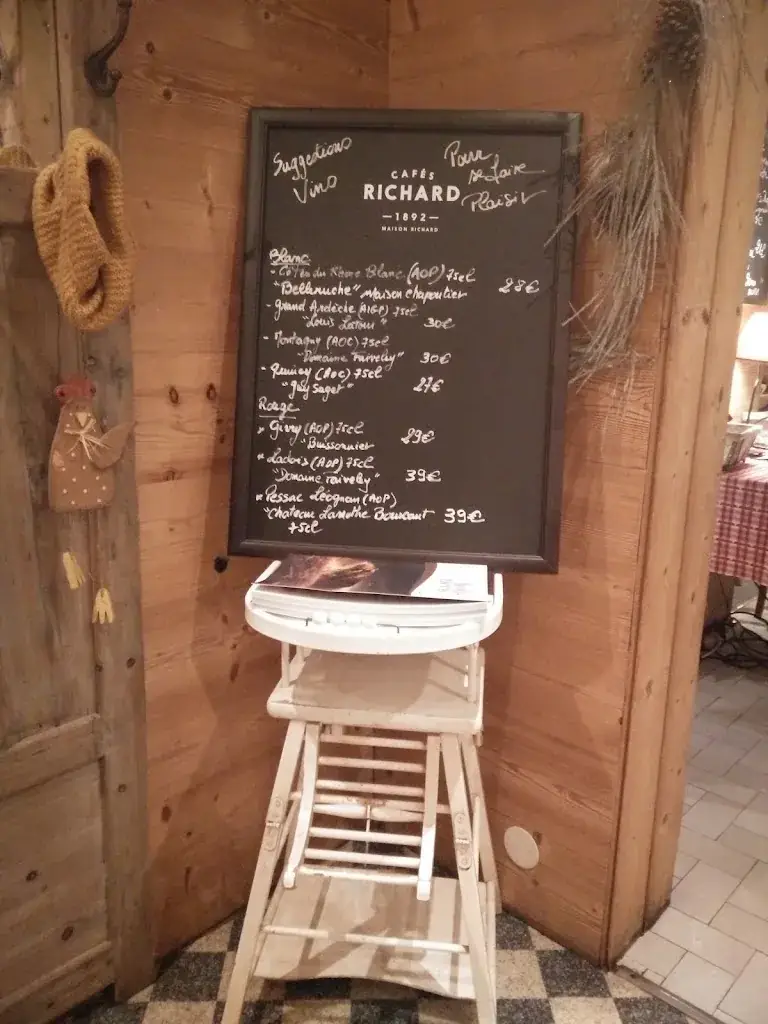 Suggestions
Vins
Pour
se faire
Plaisir
CAFÉS
RICHARD
1892
MAISON RICHARD
Blanc
- Côtes du Rhône Blanc (AOP) 75cl
"Belleruche" Maison chapoutier 28€
- Grand Ardèche (AIGP) 75cl
"Louis Latour" 30€
- Montagny (AOC) 75cl
"Domaine Faiveley" 30€
- Quincy (AOC) 75cl
"Guy Saget" 27€
Rouge
* Givry (AOP) 75cl
"Buissonnier 29€
* Ladois (AOP) 75cl
"Domaine Faiveley" 39€
* Pessac Léognan (AOP)
"Chateau Lamothe Bouscaut 39€
75cl